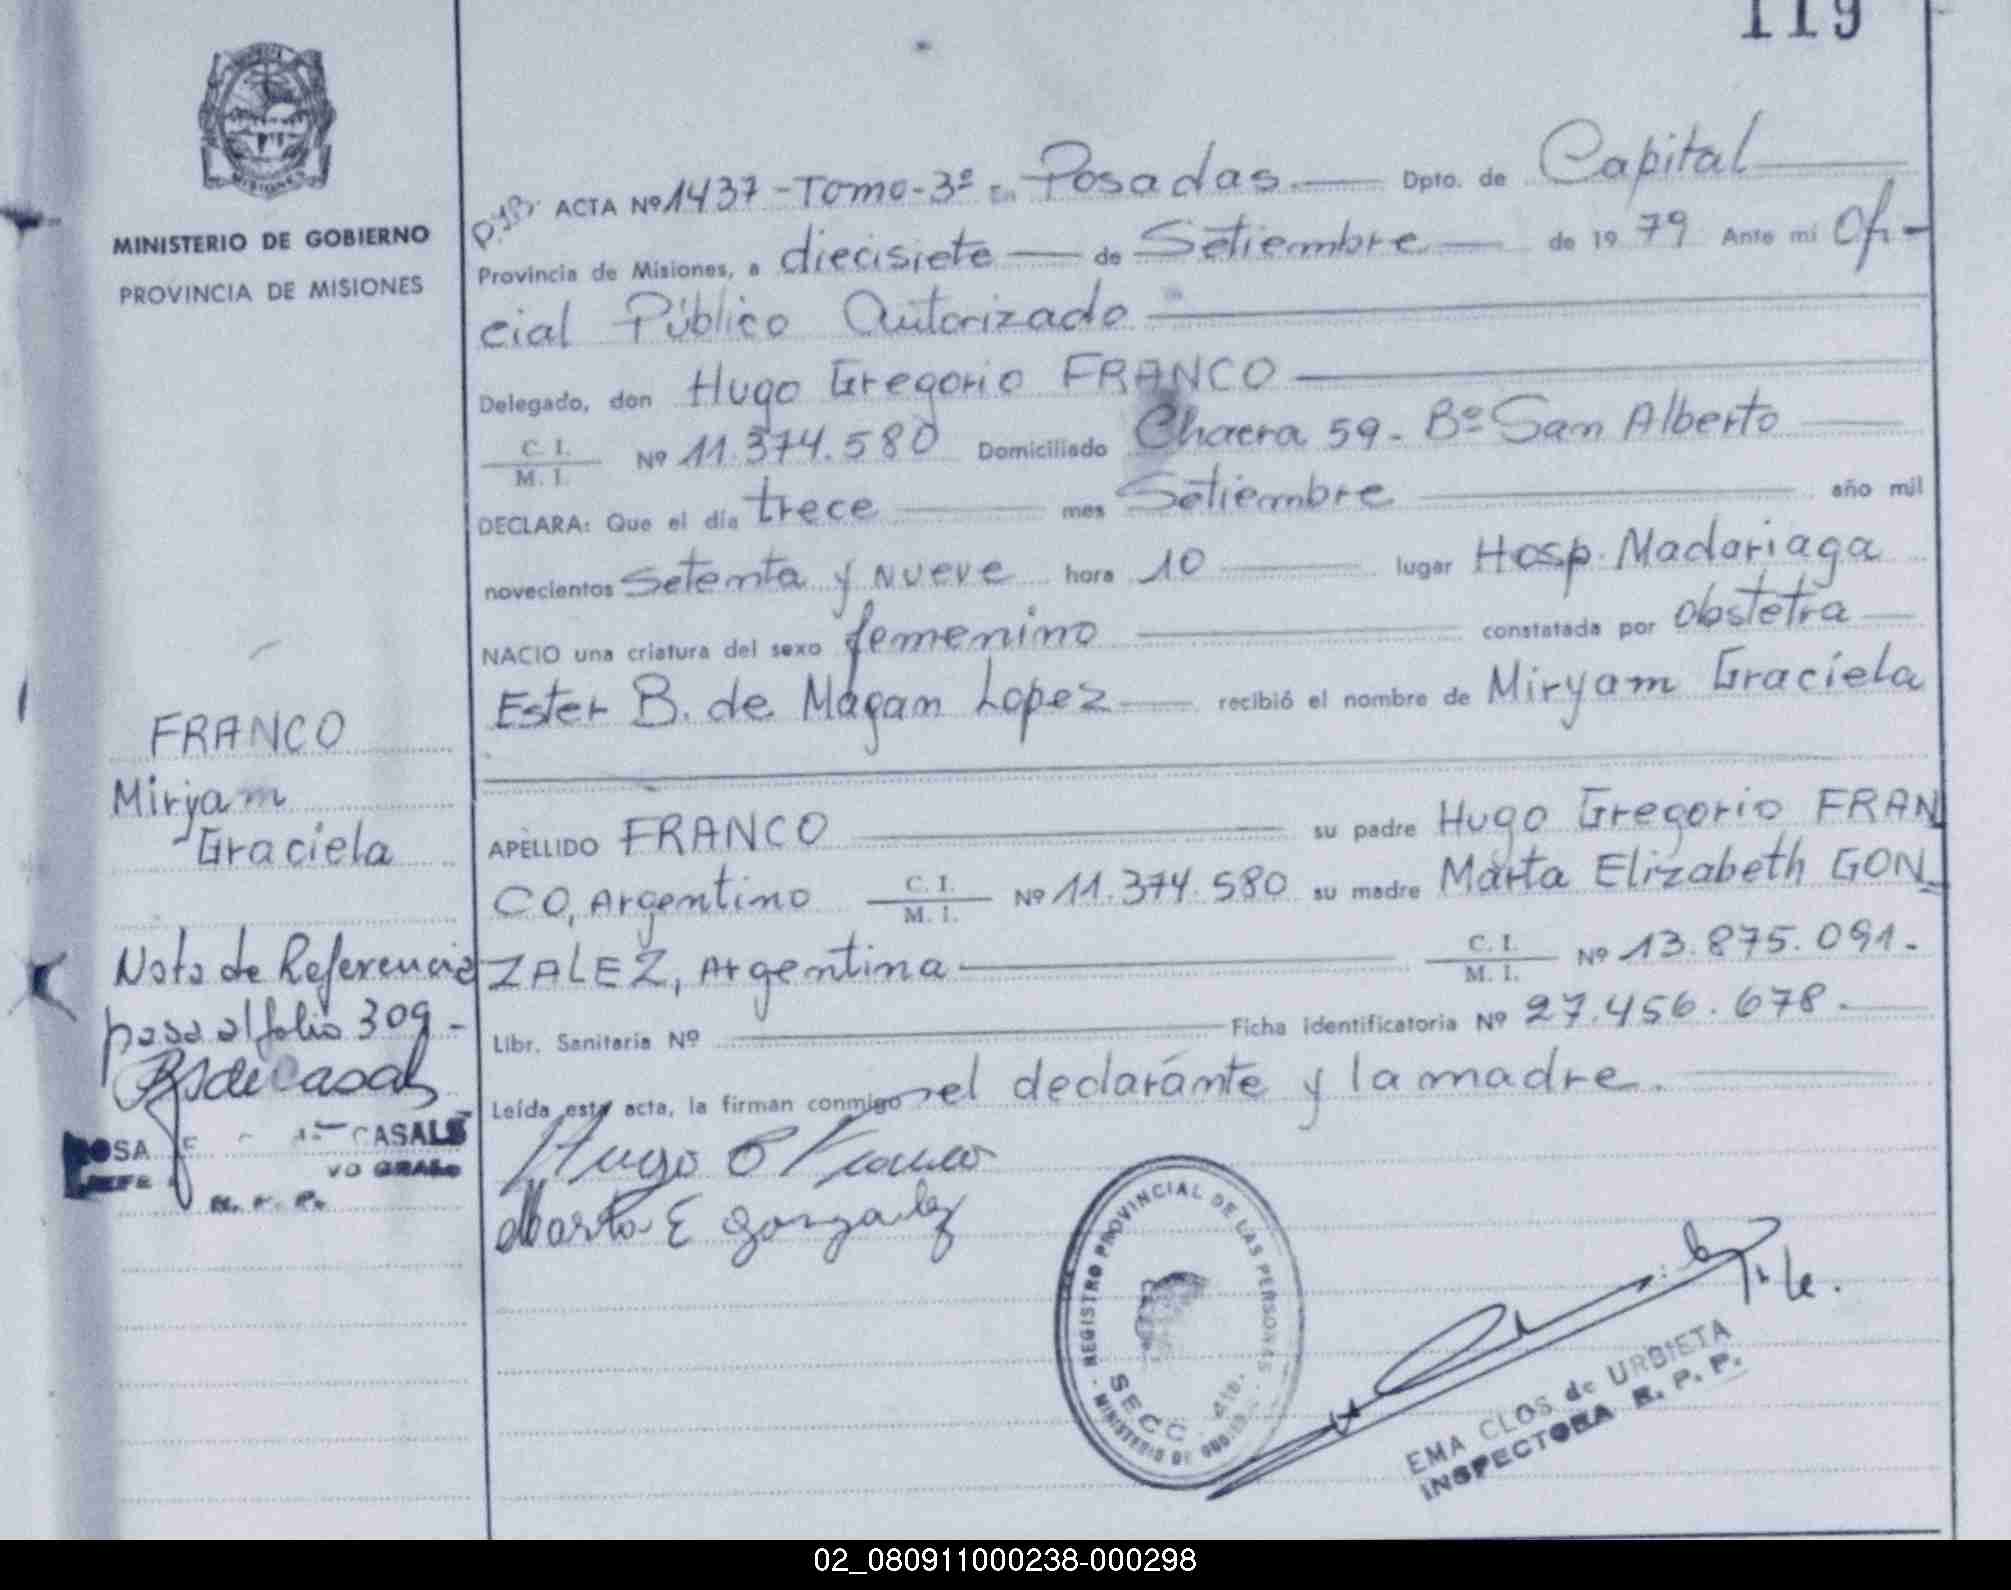 119
MISIONES
MINISTERIO DE GOBIERNO
PROVINCIA DE MISIONES
ACTA Nº 1437-Tomo-3º En Posadas. Dpto. de Capital
Provincia de Misiones, a diecisiete de Setiembre de 19 79 Ante mi Ofi-
cial Público Autorizado
Delegado, don Hugo Gregorio FRANCO
C. I.
M. I.
Nº 11.374.580 Domiciliado Chacra 59- Bº San Alberto
DECLARA: Que el día trece mes Setiembre año mil
novecientos Setenta y nueve hora 10 lugar Hosp. Madariaga
NACIO una criatura del sexo femenino constatada por obstetra
Ester B. de Magan Lopez recibió el nombre de Miryam Graciela
APELLIDO FRANCO su padre Hugo Gregorio FRAN
CO, Argentino C. I. M. I. Nº 11.374.580 su madre Marta Elizabeth GON_
ZALEZ, Argentina C. I. M. I. Nº 13.875.091.
Libr. Sanitaria Nº Ficha identificatoria Nº 27.456.678.
Leída esta acta, la firman conmigo el declarante y la madre.
Hugo G Franco
Marta E Gonzalez
FRANCO
Miryam
Graciela
Nota de Referencia
pasa al folio 309-
ROSA CASALS
JEFE VO GRADO
R. P. P.
REGISTRO PROVINCIAL DE LAS PERSONAS
SECC.
MINISTERIO DE
EMA CLOS de URBIETA
INSPECTORA R. P. P.
02_080911000238-000298